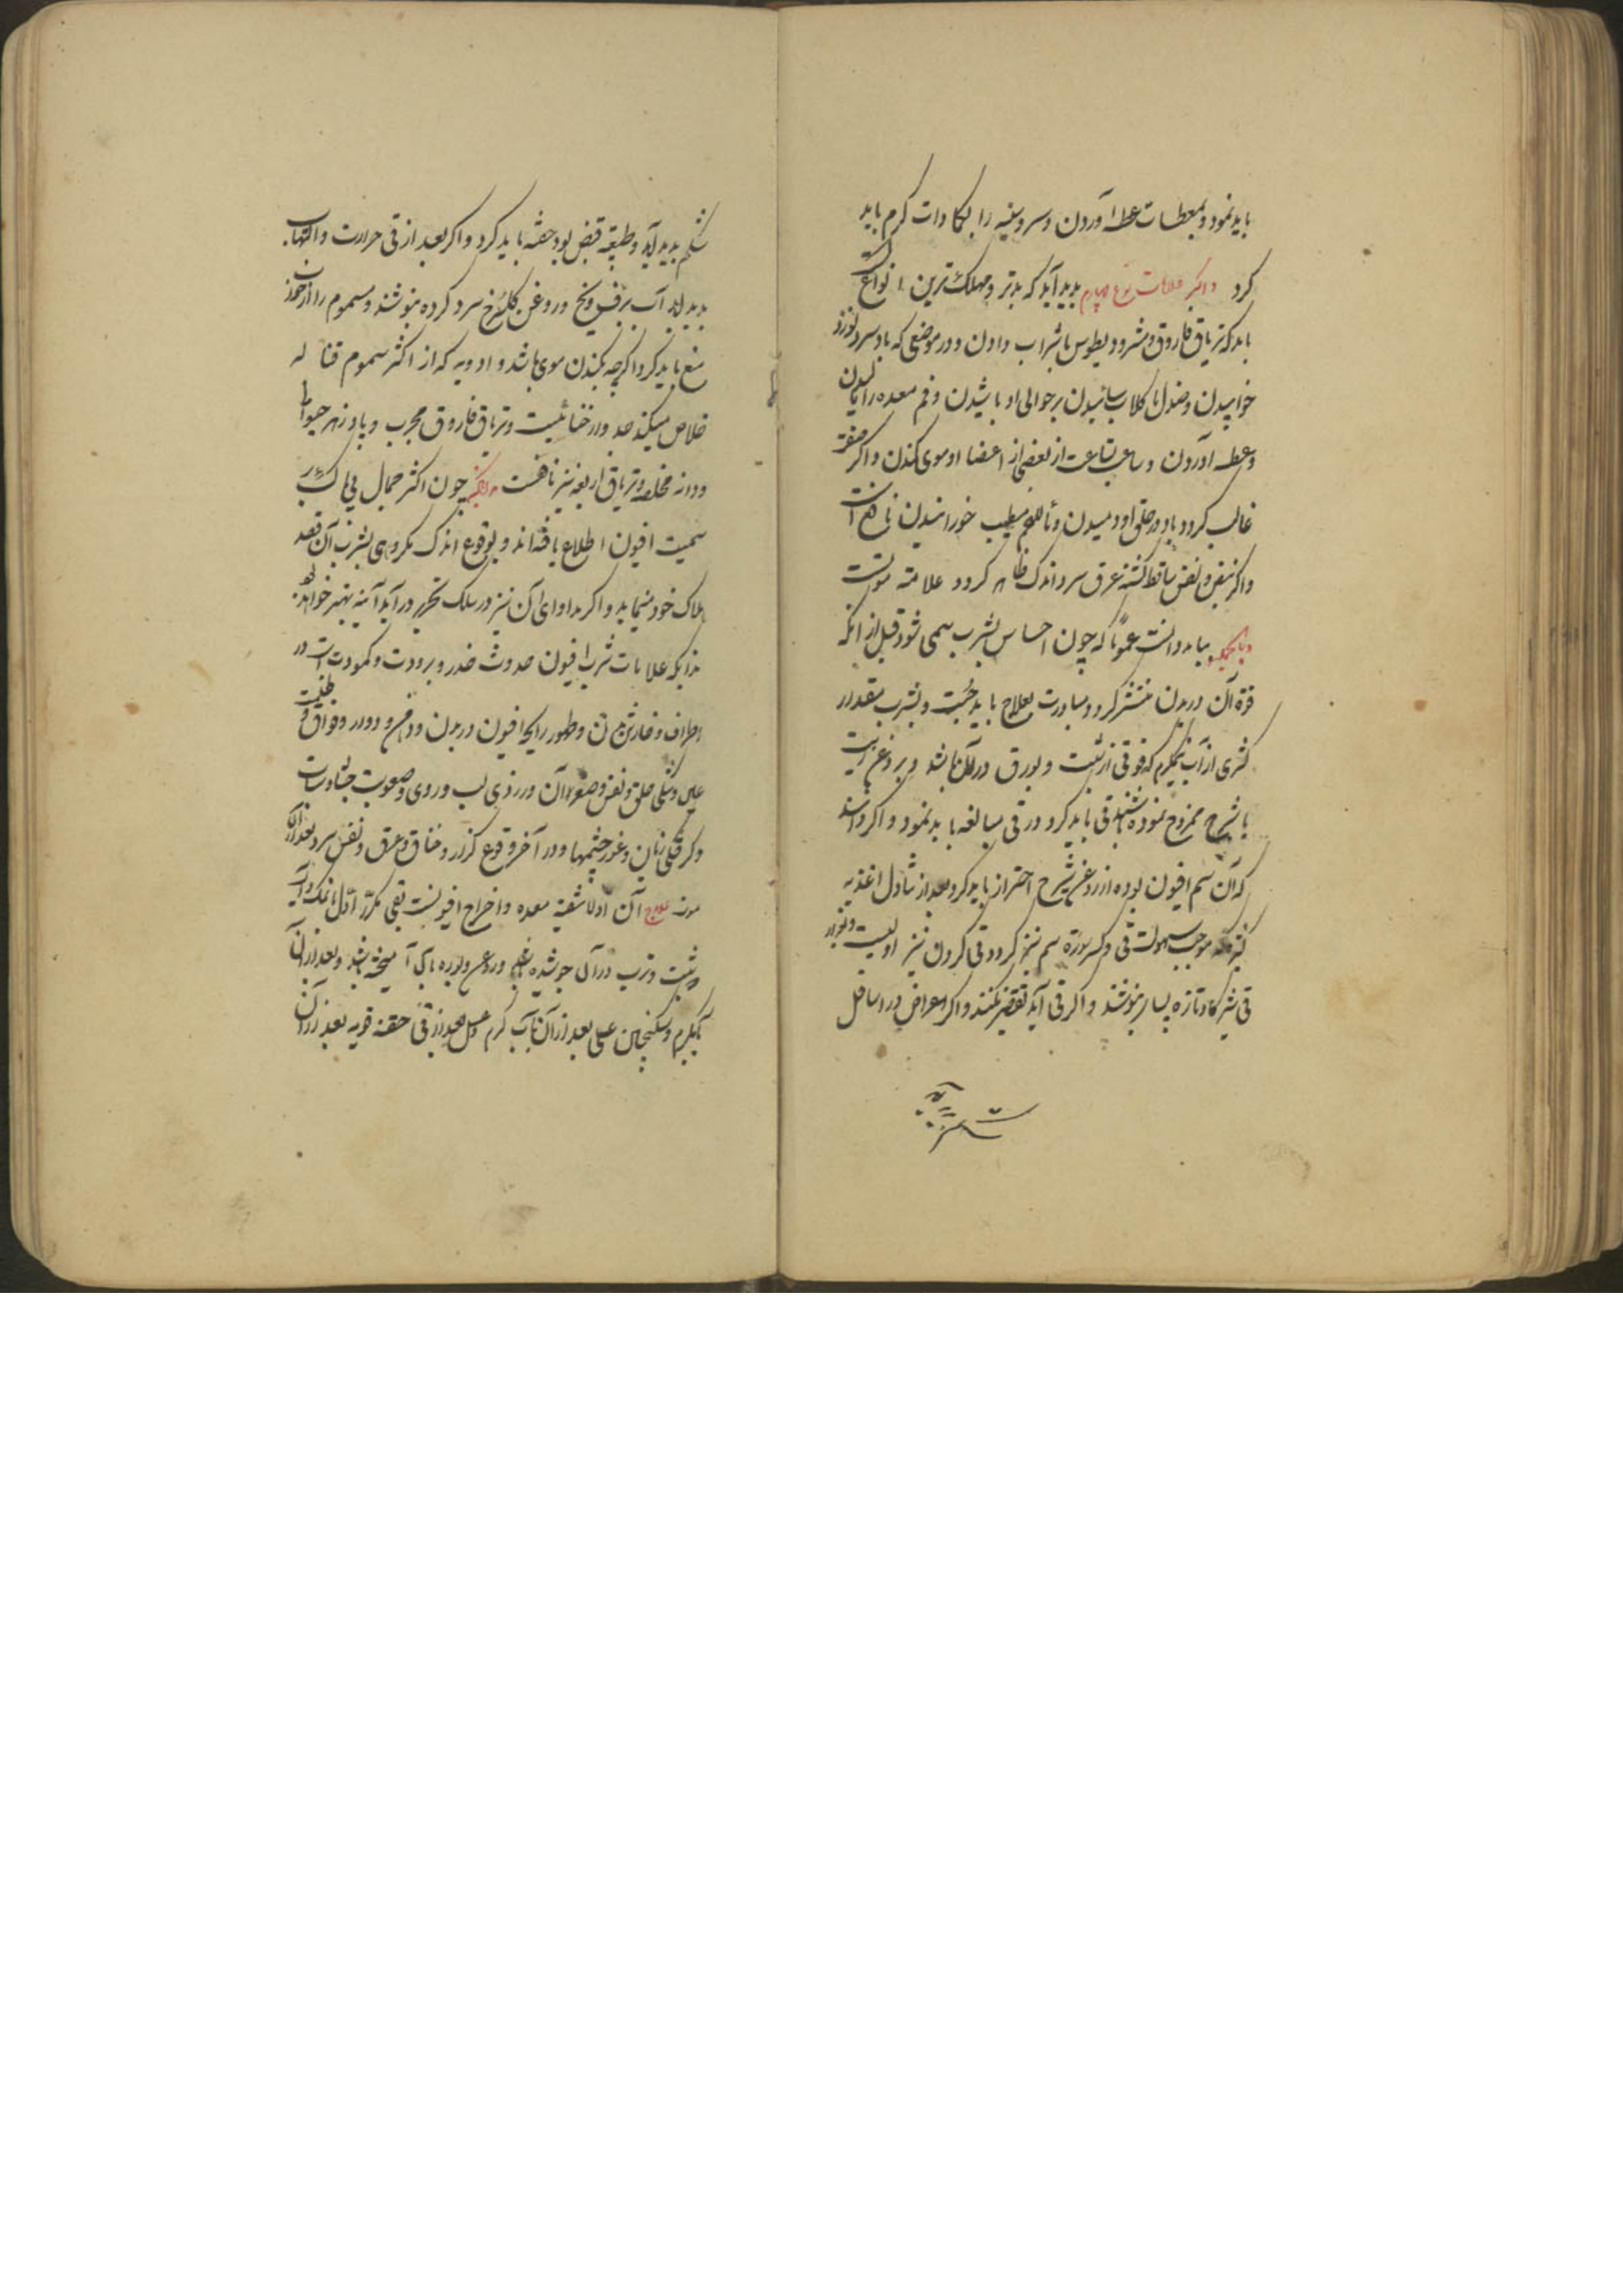 باید نمود و بمعطسات عطسه آوردن و سر و سینه را بکمادات کرم باید
کرد و اکر علامات نوع چهارم پدید آید که بدتر و مهلک ترین انواع است
باید که تریاق فاروق و مثرودیطوس با شراب دادن و در موضعی که باد سرد نوزد
خوابیدن و صندل با کلاب سائیدن بر حوالی او پاشیدن و فم معده را مالیدن
و عطسه آوردن و ساعت بساعت از بعضی از اعضا او موی کندن و اکر
غالب کردد باد در حلق او دمیدن و ماء اللحم مطیب خورانیدن نافع است
و اکر نبض و نفس ساقط کشته عرق سرد اندک ظاهر کردد علامة موتست
و بالجمله بباید دانست عموما که چون احساس بشرب سمی شود قبل از انکه
قوة آن در بدن منتشر کردد مبادرت بعلاج باید جست و بشرب مقدار
کثیری از آب نیمکرم که قوتی از شبت و بورق در آن باشد و بروغن زیت
یا شیرج ممزوج نموده باشند قی باید کرد و در قی مبالغه باید نمود و اکر دانند
که آن سم افیون بوده از روغن شیرج احتراز باید کرد و بعد از تناول اغذیه
که موجب سهولت قی و کسر سورة سم نیز کردد قی کردن نیز اولیست و بعد از
قی شیر کاو تازه بسیار بنوشند و اکر قی آید تقصیر نکنند و اکر اعراض در اسافل
شکم پدید آید و طبیعة قبض بود حقنه باید کرد و اکر بعد از قی حرارت و التهاب
پدید آید آب برف و یخ و روغن کلسرخ سرد کرده بنوشند و مسموم را از خواب
منع باید کرد اکرچه بکندن موی باشد و ادویه که از اکثر سموم قتاله
خلاص میکند جدوار خطائیست و تریاق فاروق مجرب و پادزهر حیوانی
و دانه مخلصه و تریاق اربعه نیز نافعست چون اکثر جهال بی باک بر
سمیت افیون اطلاع یافته اند و بوقوع اندک مکروهی بشرب آن قصد
هلاک خود مینماید و اکر مداوای آن نیز در سلک تحریر در آید آینه بهتر خواهد بود
بدانکه علامات شرب افیون حدوث خدر و برودت و کمودت است در
اطراف و خارش تن و ظهور رایحه افیون در بدن و دهن و دوار و فواق و ظلمت
عین و تنکی حلق و نفس و صغر آن و زردی لب و روی و صعوبت
و کرفتکی زبان و غور چشمها و در آخر وقوع کزاز و خناق و عرق و نفس سرد بعد از آن
موت علاج آن اولا تنقیه معده و اخراج افیونست بقی مکرر اول با نمک و آب
و شبت و ترب در آن جوشیده بعسل و روغن و بوره با آب آمیخته باشد و بعد از آن
آبکرم و سکنجبین عسلی بعد از آن بآب کرم و عسل و بعد از قی حقنه قویه بعد از آن